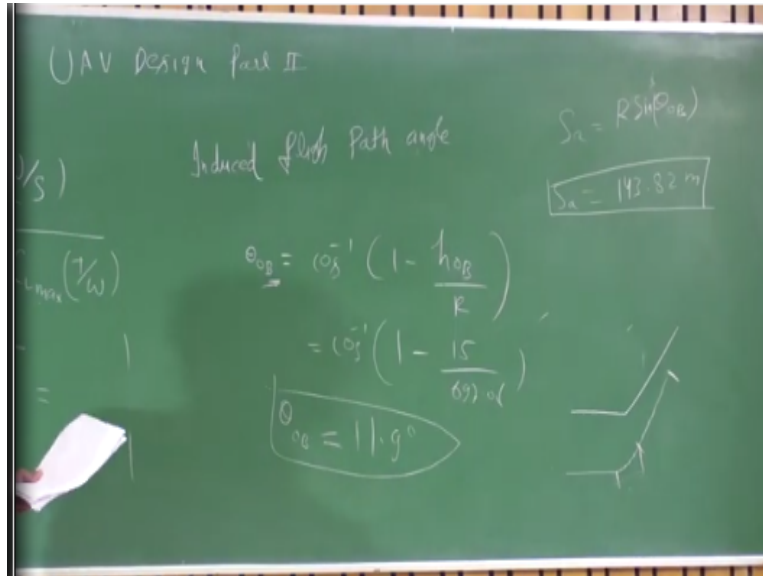 UAV Design Part II
Induced fligh Path angle
Sa = R Sin(θOB)
Sa = 143.82 m
/s)
Lmax (T/W)
=
θOB = cos⁻¹ (1 - hOB / R)
= cos⁻¹ (1 - 15 /
θOB = 11.9°